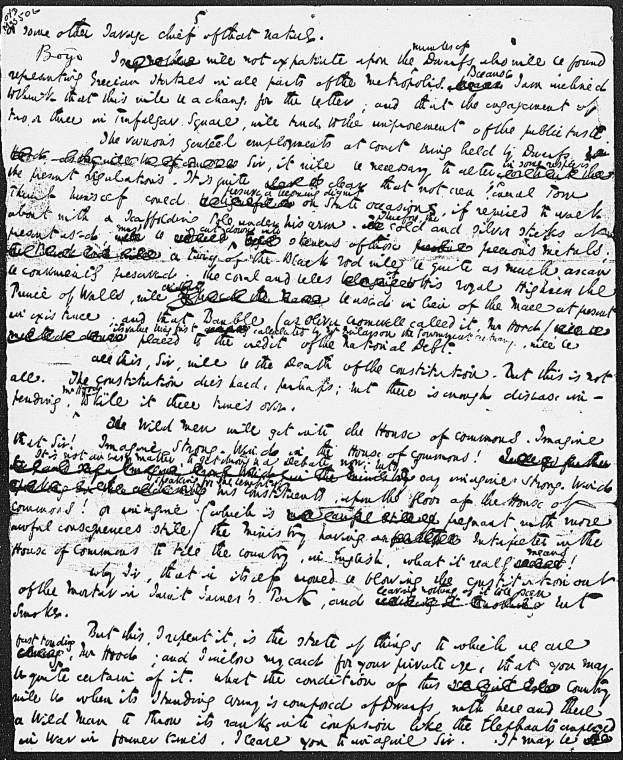 or some other Savage chief of that nature.
Boz's I will not expatiate upon the number of Dwarfs who will be found
representing Grecian statues in all parts of the metropolis. Because I am inclined
to think that this will be a change for the better; and that the engagement of
two or three in Trafalgar Square, will tend to the improvement of the public taste.
The various genteel employments at court being held by Dwarfs,
Sir, it will be necessary to alter in some respects
the present regulations. It is quite clear that not even General Tom
Thumb himself could preserve a becoming dignity on State occasions, if required to walk
about with a Scaffolding Pole under his arm. Therefore the gold and silver sticks at
present used, must be cut down into skewers of those precious metals;
a twig of the Black rod will be quite as much as can
be conveniently preserved; the coral and bells of his royal Highness the
Prince of Wales, will be used in lieu of the Mace at present
in existence; and that Bauble (as Oliver Cromwell called it, Mr Hood)
its value being first calculated by Mr Finlayson the Government actuary, will be
placed to the credit of the national Debt.
All this, Sir, will be the Death of the constitution. But this is not
all. The constitution dies hard, perhaps; but there is enough disease im-
pending, Mr Hood, to kill it three times over.
Wild men will get into the House of commons. Imagine
that Sir! Imagine Strong Wind in the House of Commons!
It is not an easy matter to get through a debate now; but
say imagine Strong Wind
speaking for the benefit of his constituents, upon the floor of the House of
commons! or imagine (which is pregnant with more
awful consequences still) the ministry having an Interpreter in the
House of Commons to tell the country, in English, what it really means!
Why Sir, that in itself would be blowing the constitution out
of the mortar in Saint James's Park, and leaving nothing of it to be seen but
smoke.
But this, I repeat it, is the state of things to which we are
fast tending, Mr Hood; and I enclose my card for your private eye, that you may
be quite certain of it. What the condition of this country
will be when its standing army is composed of Dwarfs, with here and there
a Wild Man to throw its ranks into confusion like the Elephants employed
in War in former times, I leave you to imagine Sir. It may be